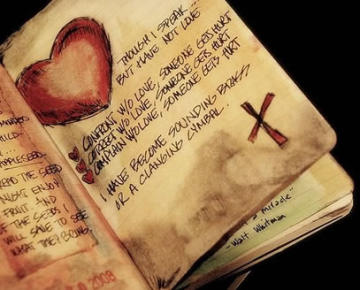 THOUGH I SPEAK
BUT HAVE NOT LOVE
CONFRONT W/O LOVE SOMEONE GETS HURT
CORRECT W/O LOVE SOMEONE GETS HURT
COMPLAIN W/O LOVE, SOMEONE GETS HURT
I HAVE BECOME SOUNDING BRASS
OR A CLANGING CYMBAL.
APPLESEED
THE SEED
NIGHT ENJOY
FRUIT AND
THE SEEDS I
WILL SAVE TO SEE
WHAT THEY BRING.
2009
a miracle"
- Walt Whitman